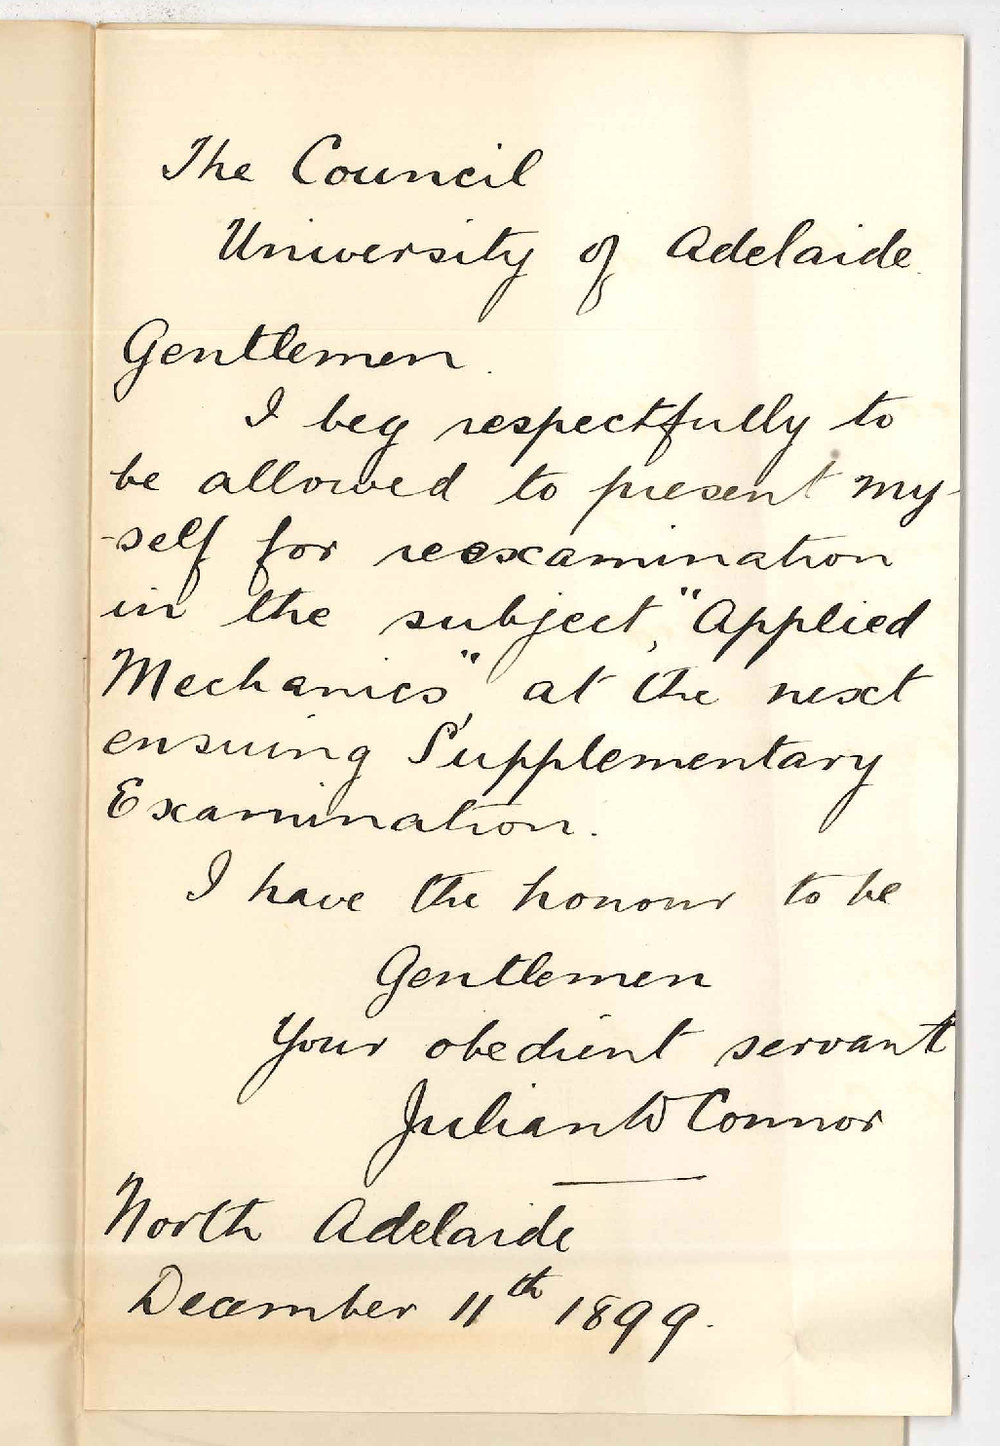 The Council
University of Adelaide.
Gentlemen.
I beg respectfully to
be allowed to present my-
-self for reexamination
in the subject, "Applied
Mechanics", at the next
ensuing Supplementary
Examination.
I have the honour to be
Gentlemen
Your obedient servant
Julian W Connor
North Adelaide
December 11th 1899.